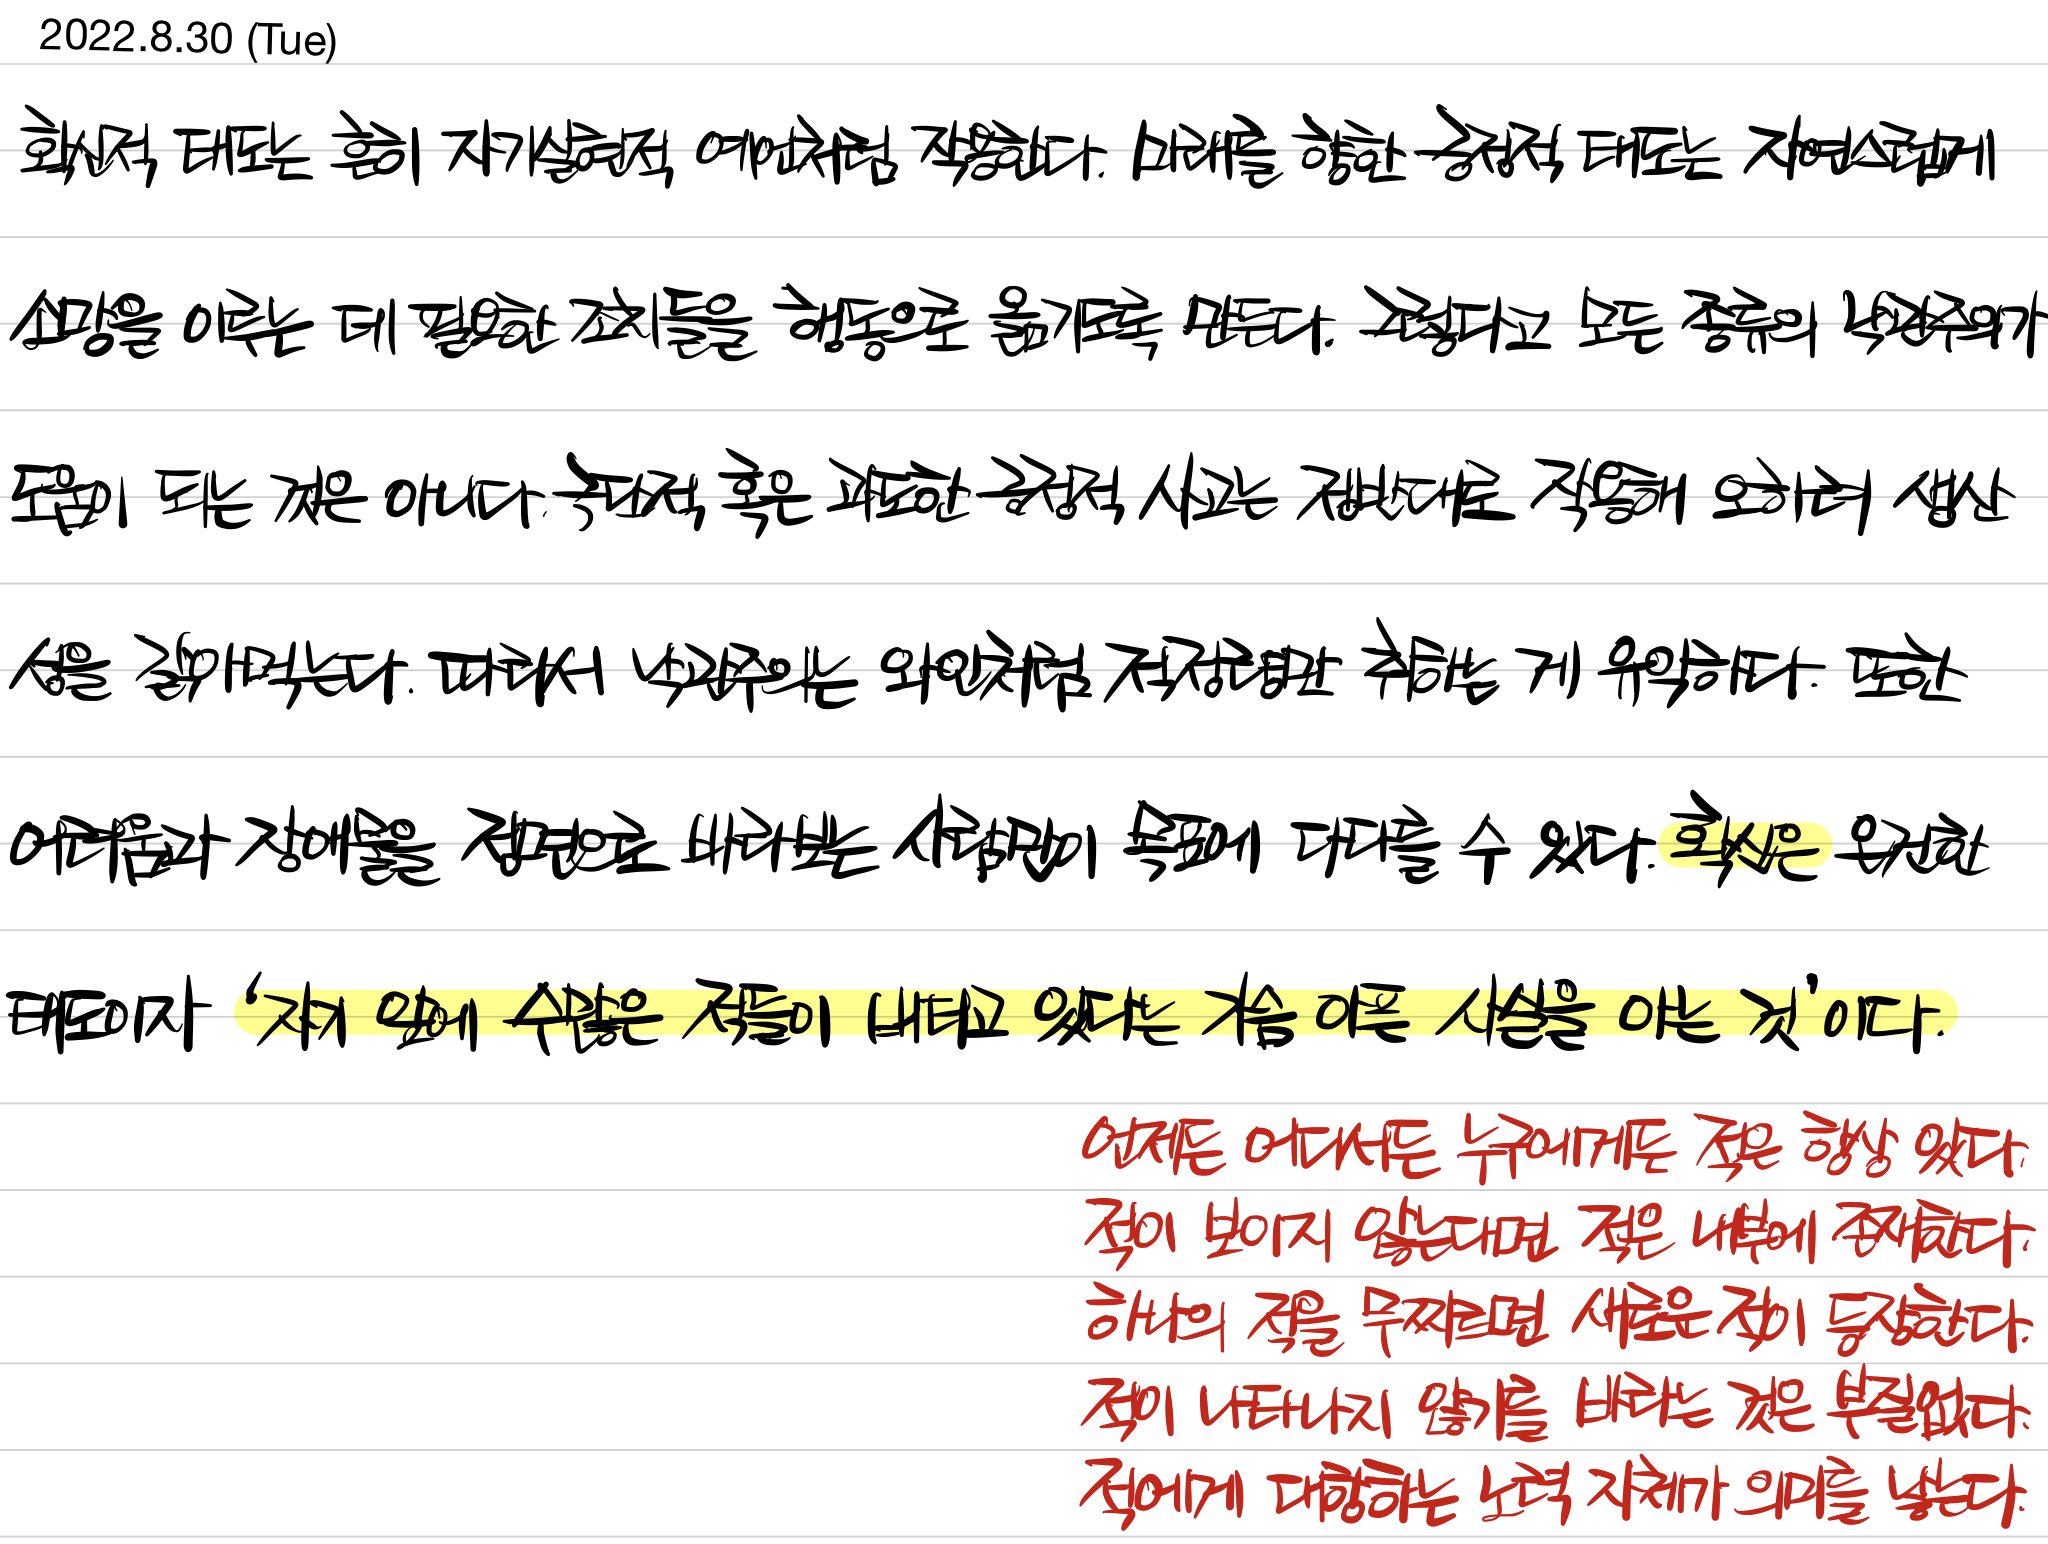 2022.8.30 (Tue)
확신적 태도는 흔히 자기실현적 예언처럼 작용한다. 미래를 향한 긍정적 태도는 자연스럽게
소망을 이루는 데 필요한 조치들을 행동으로 옮기도록 만든다. 그렇다고 모든 종류의 낙관주의가
도움이 되는 것은 아니다. 극단적 혹은 과도한 긍정적 사고는 정반대로 작용해 오히려 생산
성을 갉아먹는다. 따라서 낙관주의는 와인처럼 적정량만 취하는 게 유익하다. 또한
어려움과 장애물을 정면으로 바라보는 사람만이 목표에 다다를 수 있다. 확신은 온건한
태도이자 '자기 앞에 수많은 적들이 버티고 있다는 가슴 아픈 사실을 아는 것'이다.
언제든 어디서든 누구에게든 적은 항상 있다.
적이 보이지 않는다면 적은 내부에 존재한다.
하나의 적을 무찌르면 새로운 적이 등장한다.
적이 나타나지 않기를 바라는 것은 부질없다.
적에게 대항하는 노력 자체가 의미를 낳는다.